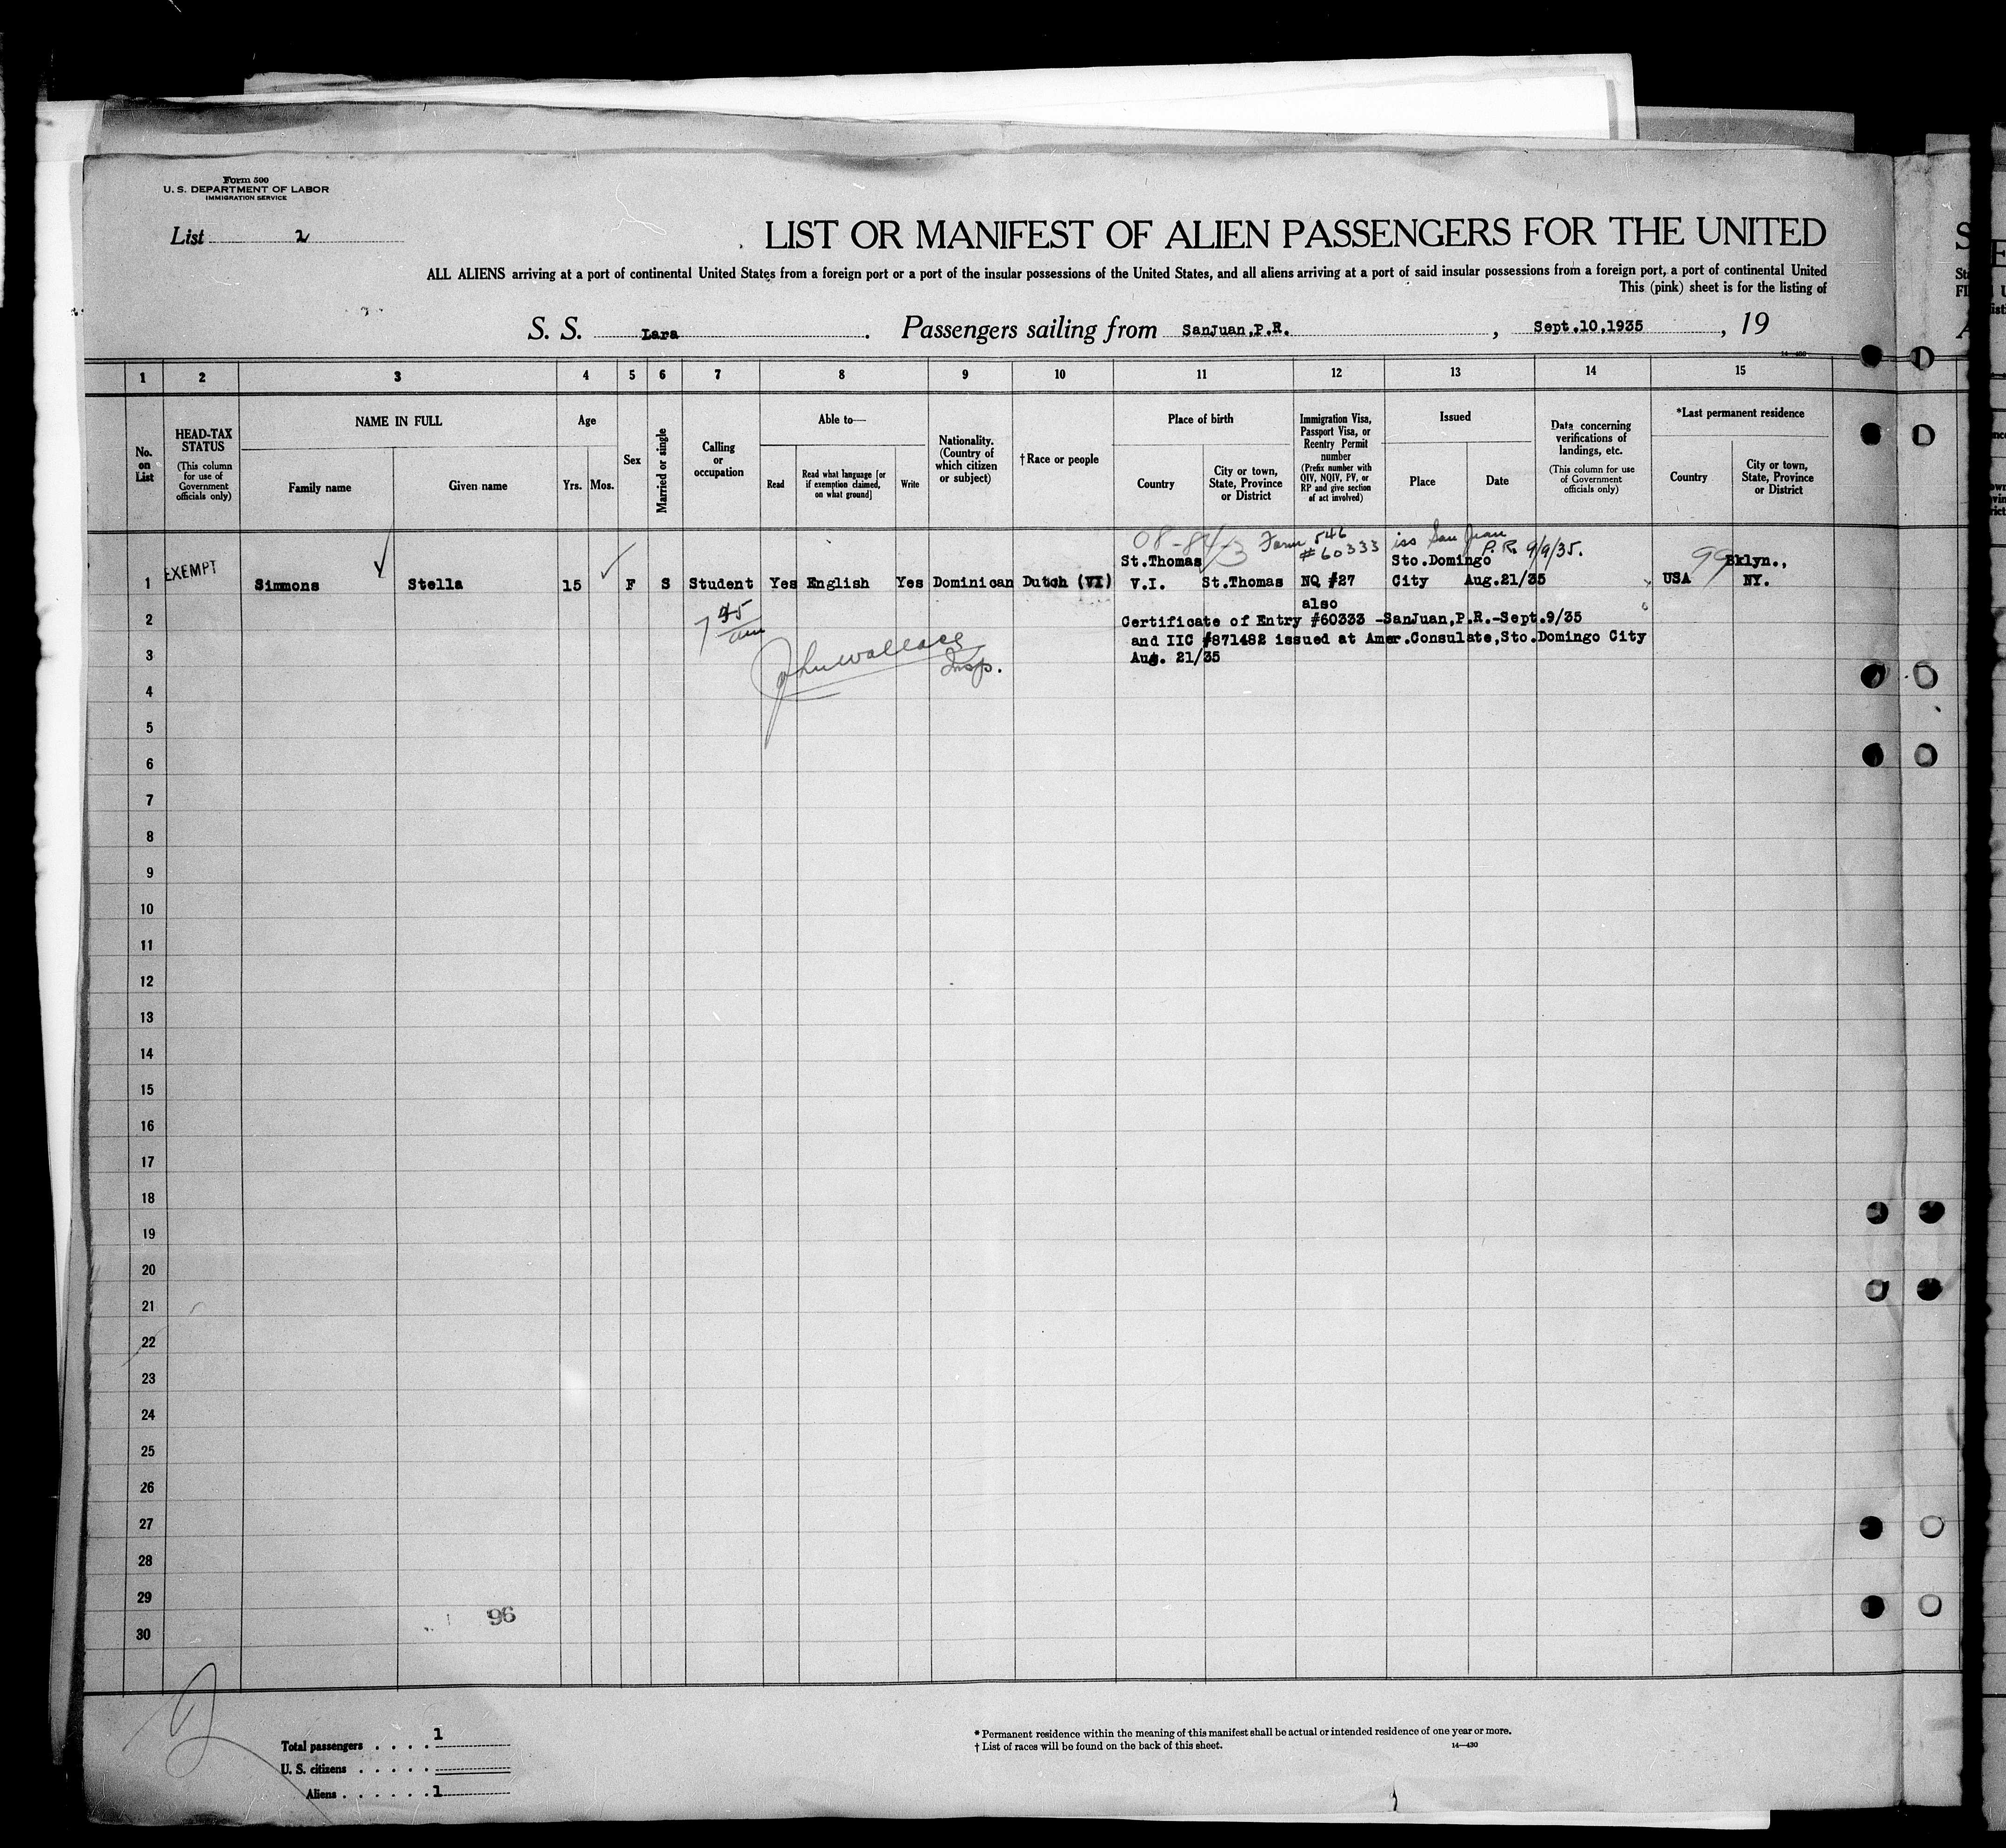 Form 500
U. S. DEPARTMENT OF LABOR
IMMIGRATION SERVICE
List 2
LIST OR MANIFEST OF ALIEN PASSENGERS FOR THE UNITED
ALL ALIENS arriving at a port of continental United States from a foreign port or a port of the insular possessions of the United States, and all aliens arriving at a port of said insular possessions from a foreign port, a port of continental United
This (pink) sheet is for the listing of
S. S. Lara. Passengers sailing from SanJuan,P.R., Sept.10,1935, 19
14—430
1 2 3 4 5 6 7 8 9 10 11 12 13 14 15
No. on List
HEAD-TAX STATUS
(This column for use of Government officials only)
NAME IN FULL
Family name Given name
Age
Yrs. Mos.
Sex
Married or single
Calling or occupation
Able to—
Read Read what language [or if exemption claimed, on what ground] Write
Nationality. (Country of which citizen or subject)
†Race or people
Place of birth
Country City or town, State, Province or District
Immigration Visa, Passport Visa, or Reentry Permit number
(Prefix number with QIV, NQIV, PV, or RP and give section of act involved)
Issued
Place Date
Data concerning verifications of landings, etc.
(This column for use of Government officials only)
*Last permanent residence
Country City or town, State, Province or District
Form 546 iss San Juan
#60333 P.R. 9/9/35.
St.Thomas Sto.Domingo 99 Bklyn.,
1 EXEMPT Simmons Stella 15 F S Student Yes English Yes Dominican Dutch (VI) V.I. St.Thomas NQ #27 City Aug.21/35 USA NY.
also
2 7 45 am Certificate of Entry #60333 -SanJuan,P.R.-Sept.9/35
and IIC #871482 issued at Amer.Consulate,Sto.Domingo City
3 John Wallace Insp. Aug. 21/35
4
5
6
7
8
9
10
11
12
13
14
15
16
17
18
19
20
21
22
23
24
25
26
27
28
29
96
30
Total passengers . . . . 1
U. S. citizens . . . . .
Aliens . . . . . . 1
* Permanent residence within the meaning of this manifest shall be actual or intended residence of one year or more.
† List of races will be found on the back of this sheet. 14—430